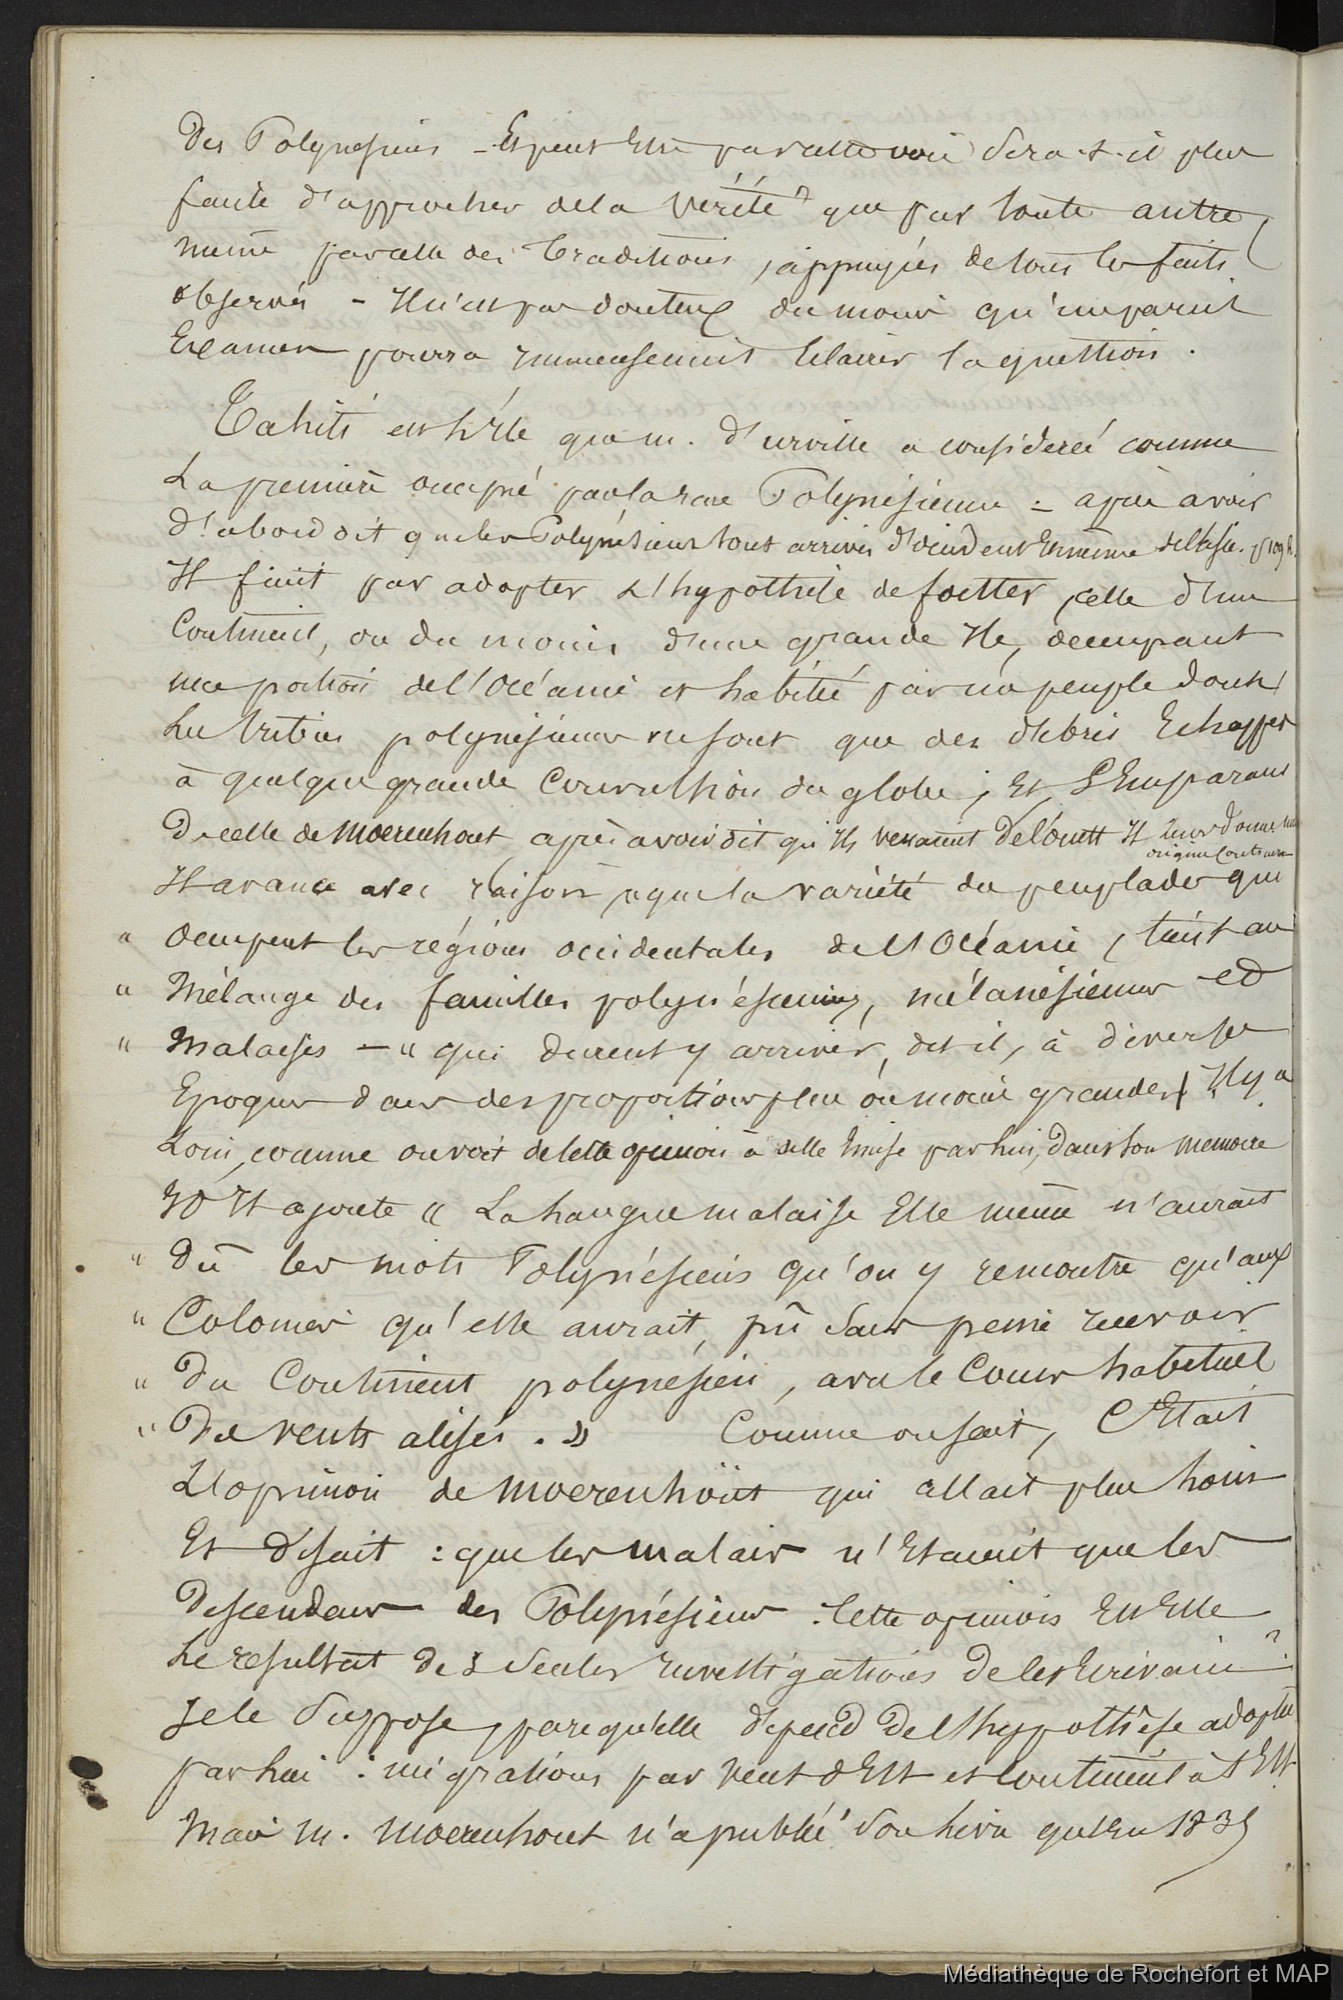 Des Polynésiens - Et peut être par cette voie sera-t-il plus
facile d'approcher de la vérité que par toute autre
même par celle des traditions, appuyées de tous les faits
observés - Il n'est pas douteux du moins qu'un pareil
Examen pourra immensement Eclairer la question.
Tahiti est l'ile que m. d'urville a considerée comme
La première occupée par la race Polynésienne = après avoir
D'abord dit que les Polynésiens sont arrivés d'occident Et même de l'asie. p 109
Il finit par adopter L'hypothèse de foster, celle d'un
Continent, ou du moins d'une grande Ile, occupant
une portion de l'Océanie et habitée par un peuple dont
Les tribus polynésiennes ne sont que des débris Echappés
à quelque grande Convulsion du globe; Et, S'Emparant
De celle de Moerenhout, après avoir dit qu'Ils venaient De l'ouest Il leur donne une
origine contraire
Il avance avec raison, "que la variété des peuplades qui
" Occupent les régions occidentales de l'Océanie, tient au
" Mélange des familles polynésiennes, mélanésiennes et
" Malaises - " qui durent y arriver, dit il, à diverses
Epoques dans des proportions plus ou moins grandes. Il y a
Loin, comme on voit de cette opinion à celle Emise par lui, dans son memoire
Où Il ajoute " La Langue malaise Elle même n'aurait
" Dû les mots Polynésiens qu'on y rencontre qu'aux
" Colonies qu'elle aurait, pû sans peine recevoir
" Du Continent polynésien, avec le Cours habituel
" Des vents alisés. » Comme on sait, C'Etait
L'opinion de Moerenhoüt qui allait plus loin
Et disait : que les malais n'Etaient que les
Descendans des Polynésiens. Cette opinion Est Elle
Le résultat des seules Investigations de cet Ecrivain?
Je le suppose, parcequ'elle dépend de l'hypothèse adoptée
par lui : migrations par vent d'Est et Continent à l'Est
Mais m. Moerenhout n'a publié son livre qu'en 1835
Médiathèque de Rochefort et MAP